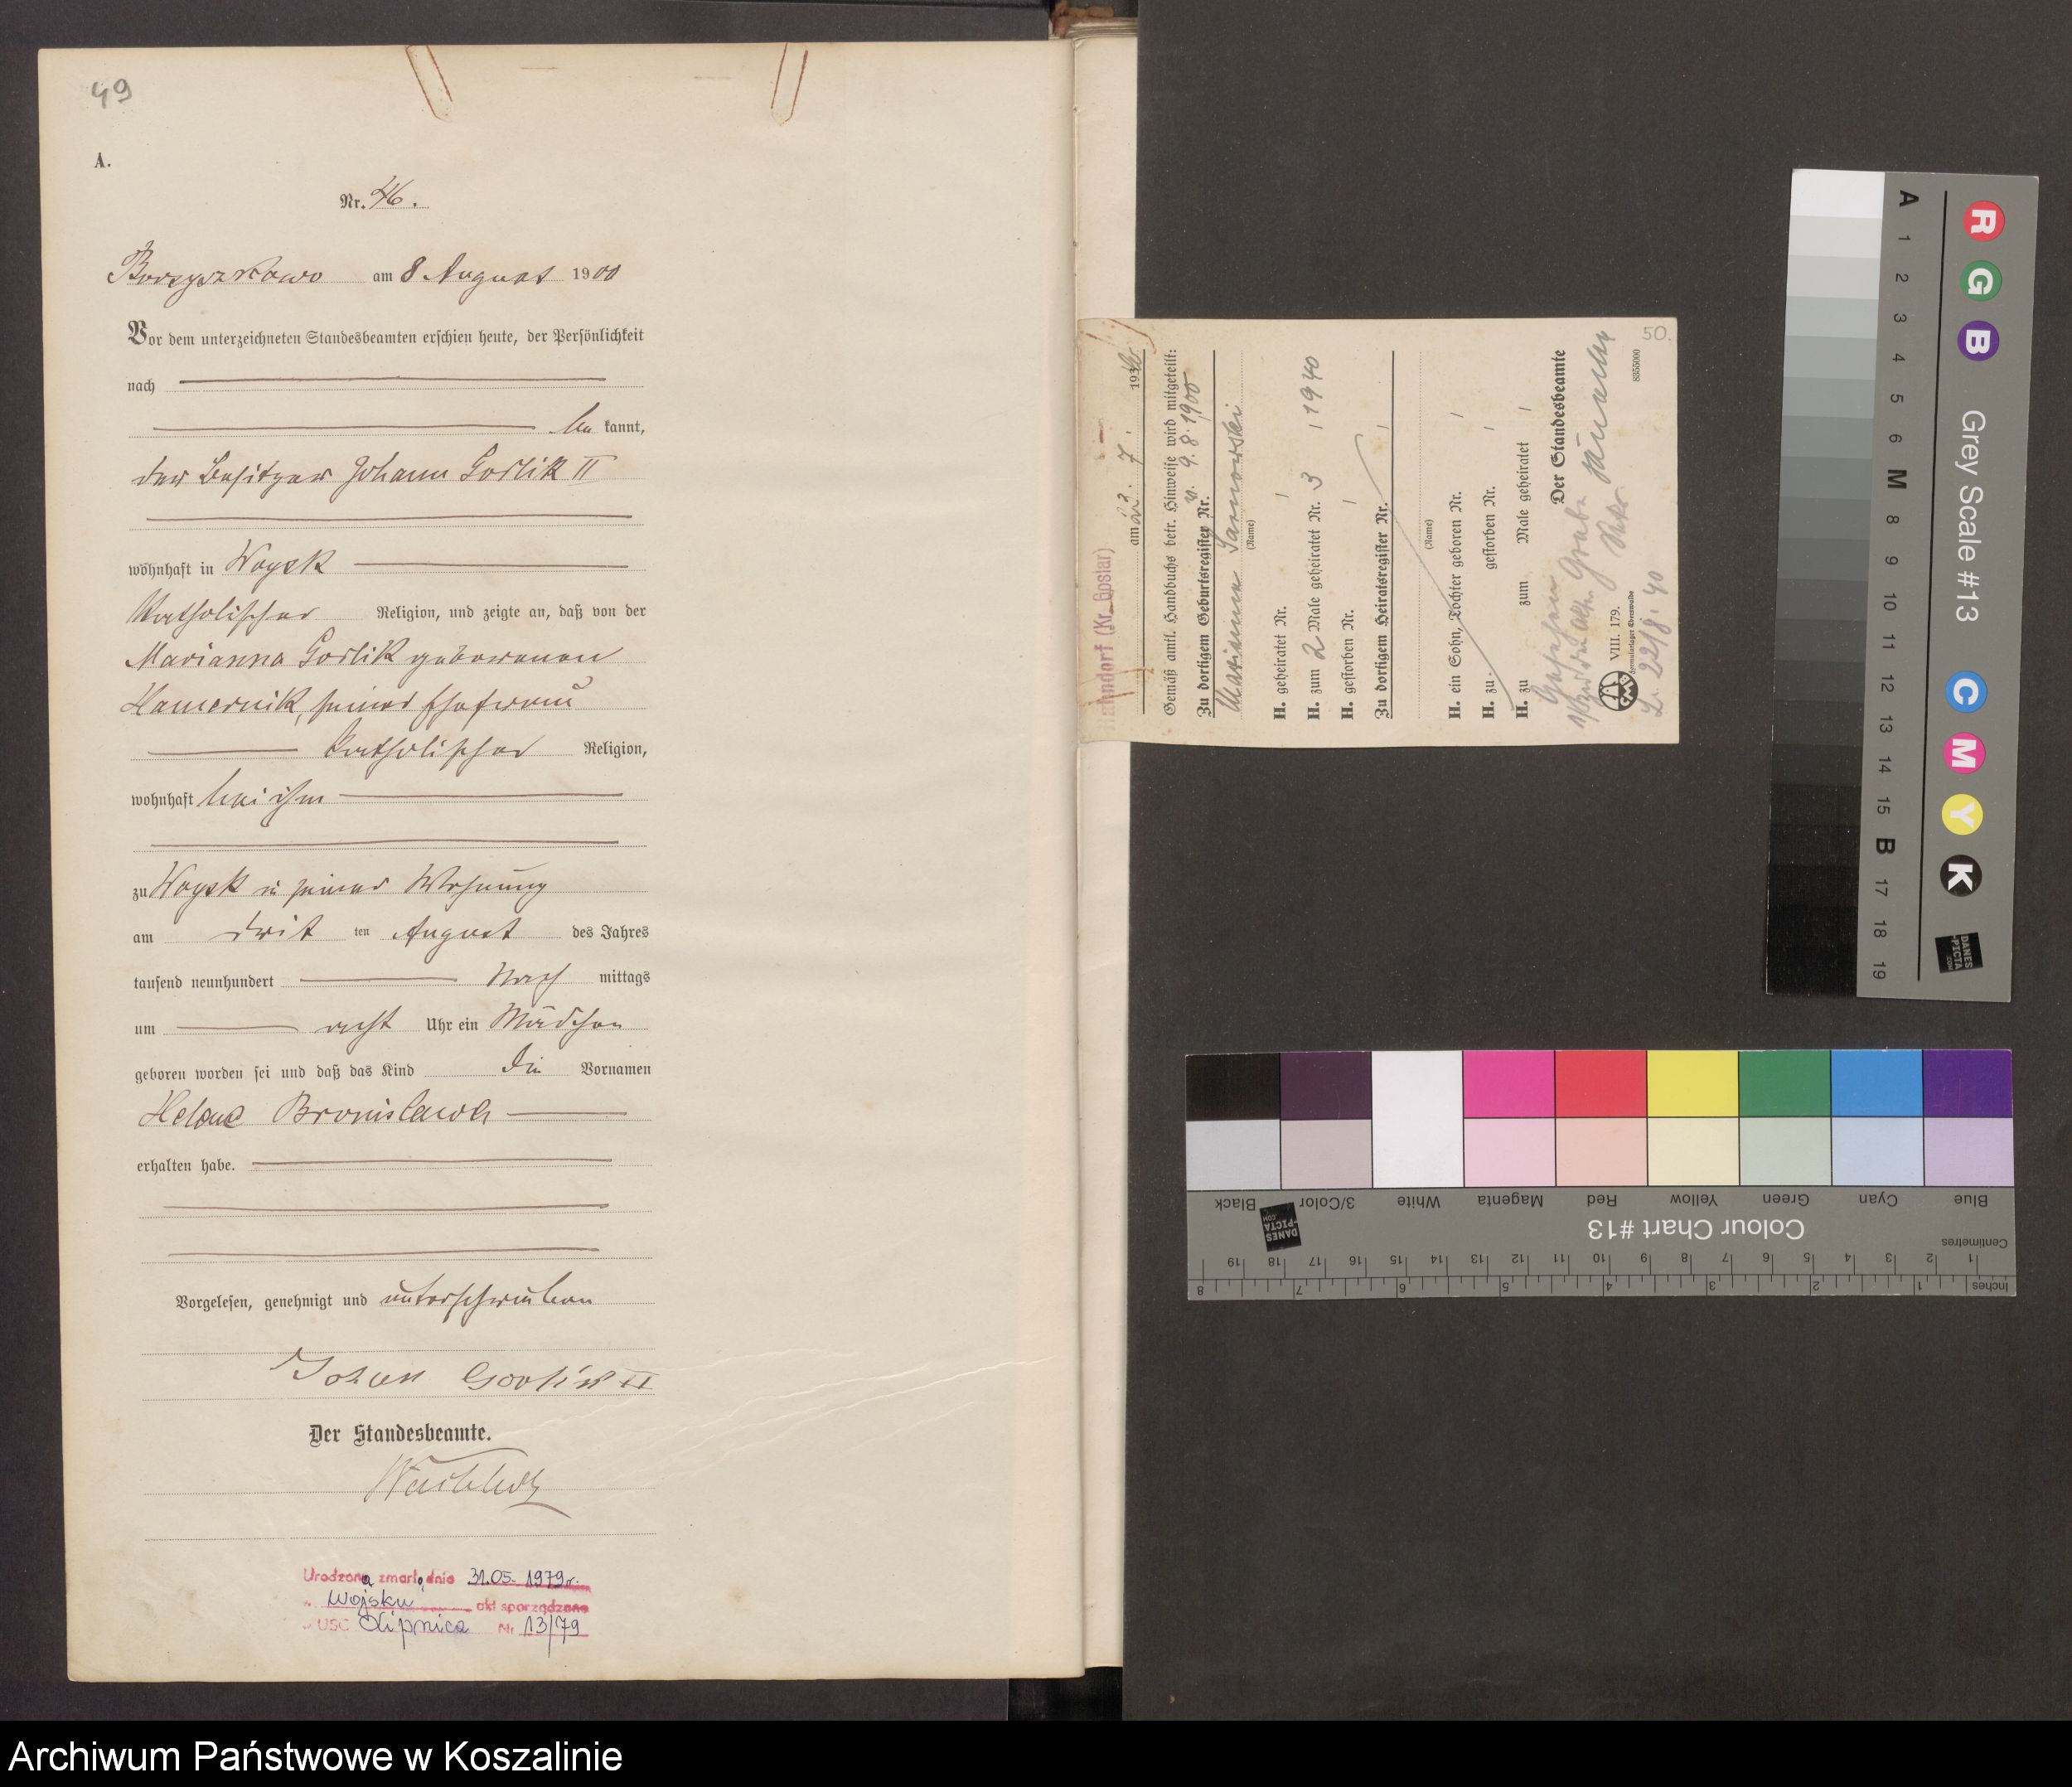 49
A.
Nr. 46.
Borzyszkowo am 8 August 1900
Vor dem unterzeichneten Standesbeamten erschien heute, der Persönlichkeit
nach
be kannt,
der Besitzer Johann Gorlik II
wohnhaft in Woysk
katholischer Religion, und zeigte an, daß von der
Marianna Gorlik geborenen
Hamernik, seiner Ehefrau
katholischer Religion,
wohnhaft bei ihm
zu Woysk in seiner Wohnung
am drit ten August des Jahres
tausend neunhundert Nach mittags
um acht Uhr ein Mädchen
geboren worden sei und daß das Kind die Vornamen
Helene Bronislawa
erhalten habe.
Vorgelesen, genehmigt und unterschrieben
Johan Gorlik II
Der Standesbeamte.
Urodzona zmarła dnia 31.05.1979r.
w Wojsku akt sporządzono
w USC Lipnica Nr 13/79
(Kr. Goslar)
am 23. 7. 1940
Gemäß amtl. Handbuchs betr. Hinweise wird mitgeteilt:
Zu dortigem Geburtsregister Nr. v. 9.8.1900
Marianna
(Name)
H. geheiratet Nr. /
H. zum 2 Male geheiratet Nr. 3 / 1940
H. gestorben Nr. /
Zu dortigem Heiratsregister Nr. /
(Name)
H. ein Sohn, Tochter geboren Nr. /
H. zu gestorben Nr. /
H. zu zum Male geheiratet /
Der Standesbeamte
VIII. 179.
22/8. 40
8355000
50.
Grey Scale #13
A 1 2 3 4 5 6 M 8 9 10 11 12 13 14 15 B 17 18 19
R G B C M Y K
DANES
-PICTA
.COM
Colour Chart #13
Blue Cyan Green Yellow Red Magenta White 3/Color Black
DANES
-PICTA
.COM
Centimetres
1 2 3 4 5 6 7 8 9 10 11 12 13 14 15 16 17 18 19
Inches 1 2 3 4 5 6 7 8
Archiwum Państwowe w Koszalinie